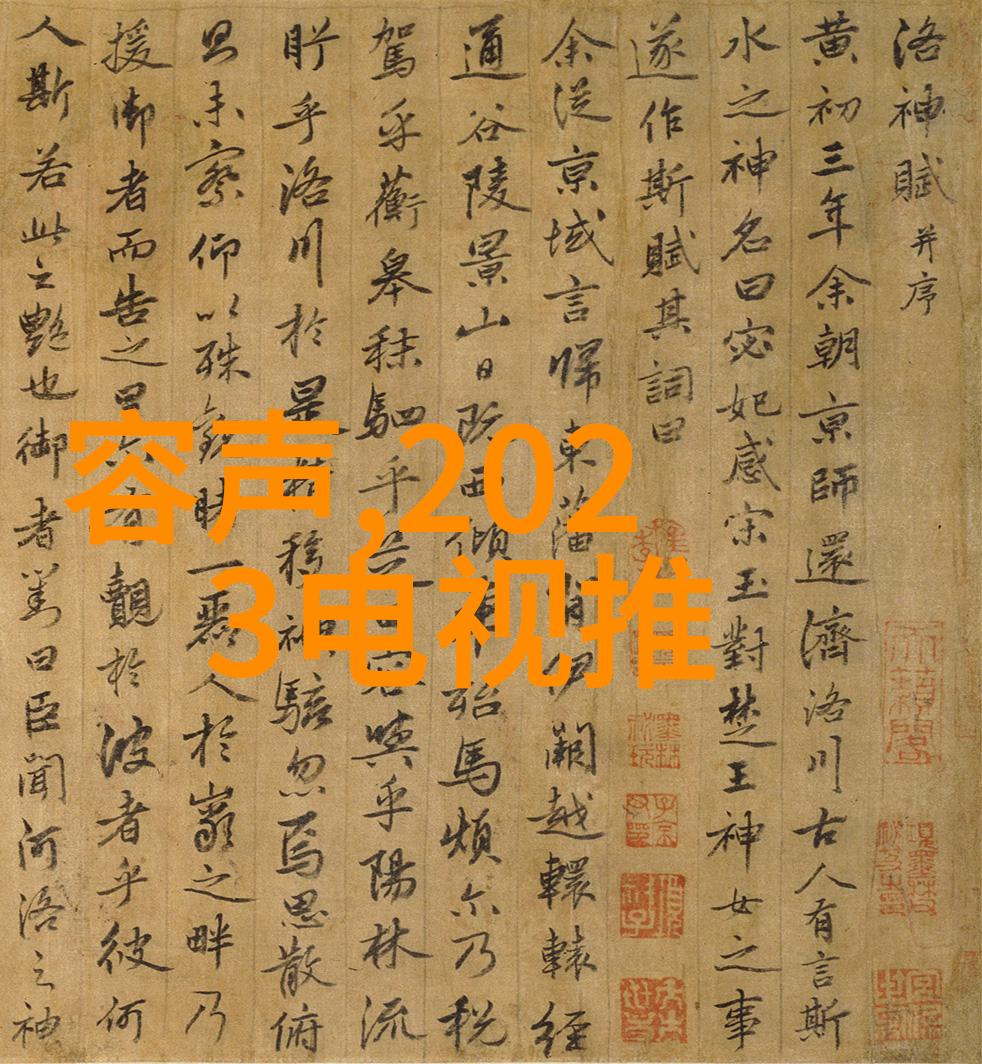 洛神賦并序
黄初三年余朝京師還濟洛川古人有言斯
水之神名曰宓妃感宋玉對楚王神女之事
遂作斯賦其詞曰
余從京域言歸東藩背伊闕越轘轅經
通谷陵景山日既西傾車殆馬煩尒乃税
駕乎蘅皋秣駟乎芝田容與乎陽林流
眄乎洛川於是精移神駭忽焉思散俯
則未察仰以殊觀睹一麗人於巖之畔乃
援御者而告之曰尒有覿於彼者乎彼何
人斯若此之艷也御者對曰臣聞河洛之神
容声,202
3电视推